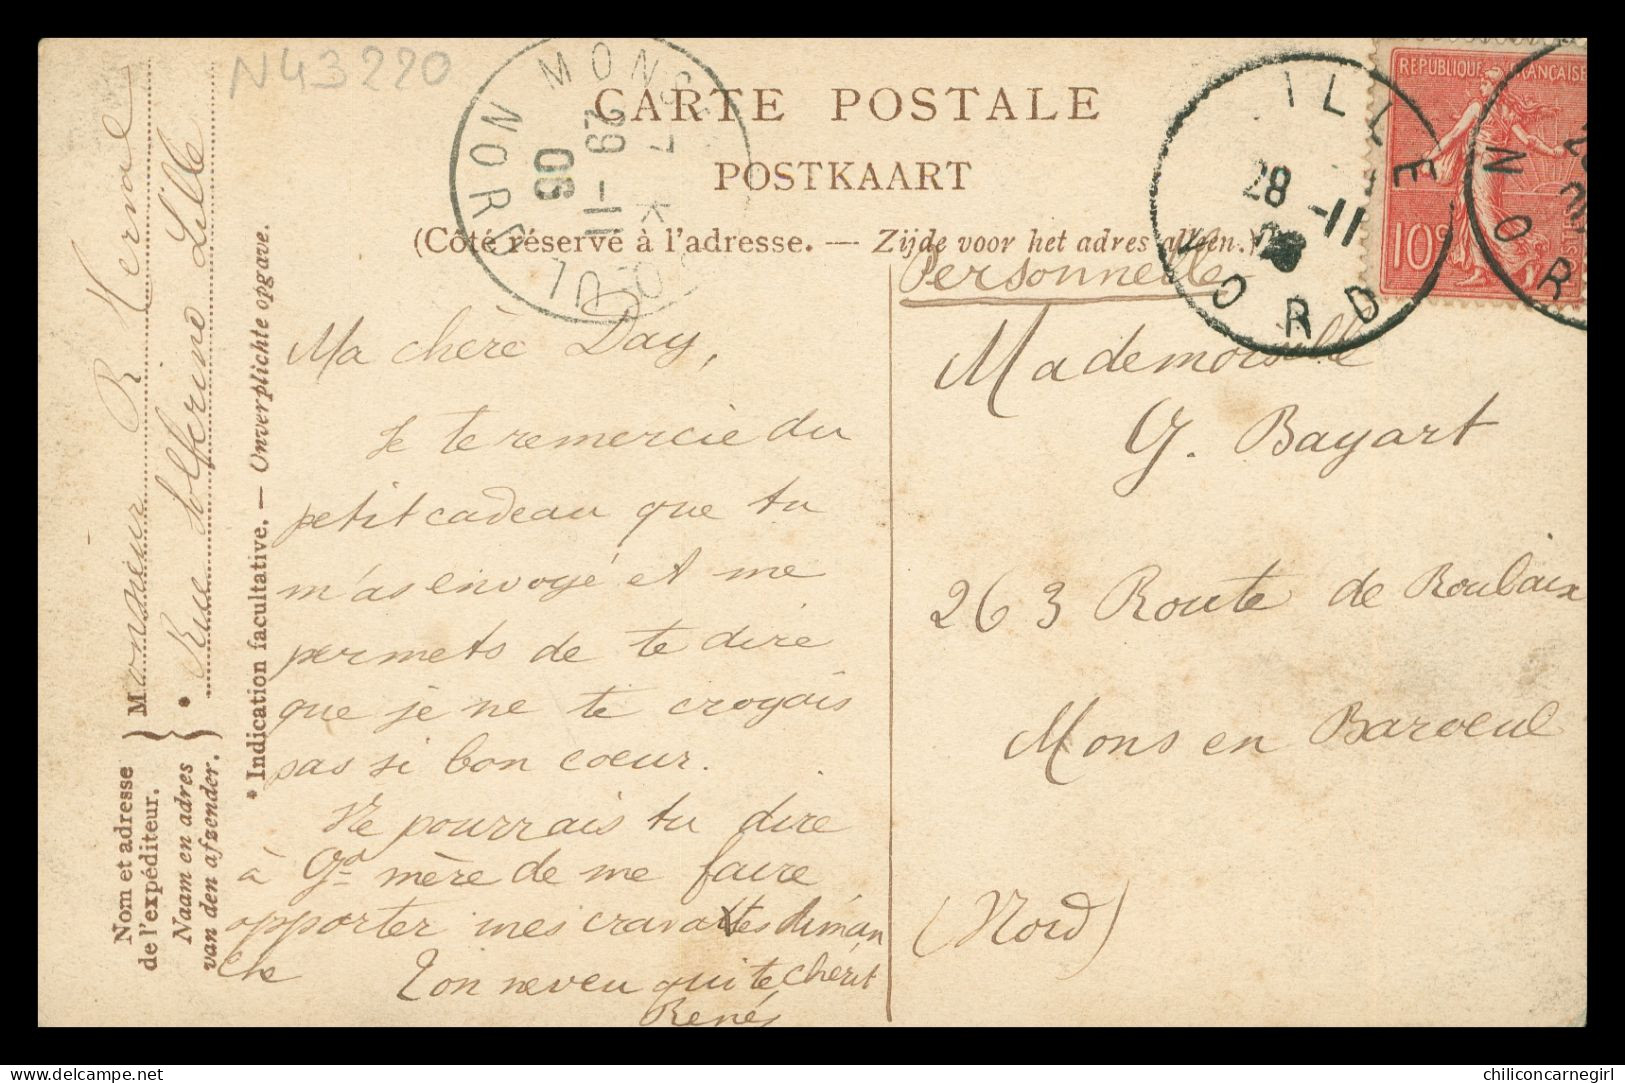 N43220
CARTE POSTALE
POSTKAART
(Côté réservé à l'adresse. — Zijde voor het adres alleen.)
MONS
NORD
7
29 - 11
06
LILLE
28 - 11
NORD
REPUBLIQUE FRANÇAISE
10c
POSTES
NOR
Nom et adresse
de l'expéditeur.
Naam en adres
van den afzender.
Monsieur R
* Rue Solferino Lille
* Indication facultative. — Onverplichte opgave.
Ma chère Day,
Je te remercie du
petit cadeau que tu
m'as envoyé et me
permets de te dire
que je ne te croyais
pas si bon coeur.
Ne pourrais tu dire
à Gd mère de me faire
apporter mes cravattes diman
che Ton neveu qui te chérit
René
Personnelle
Mademoiselle
G. Bayart
263 Route de Roubaix
Mons en Baroeul
(Nord)
chiliconcarnegirl